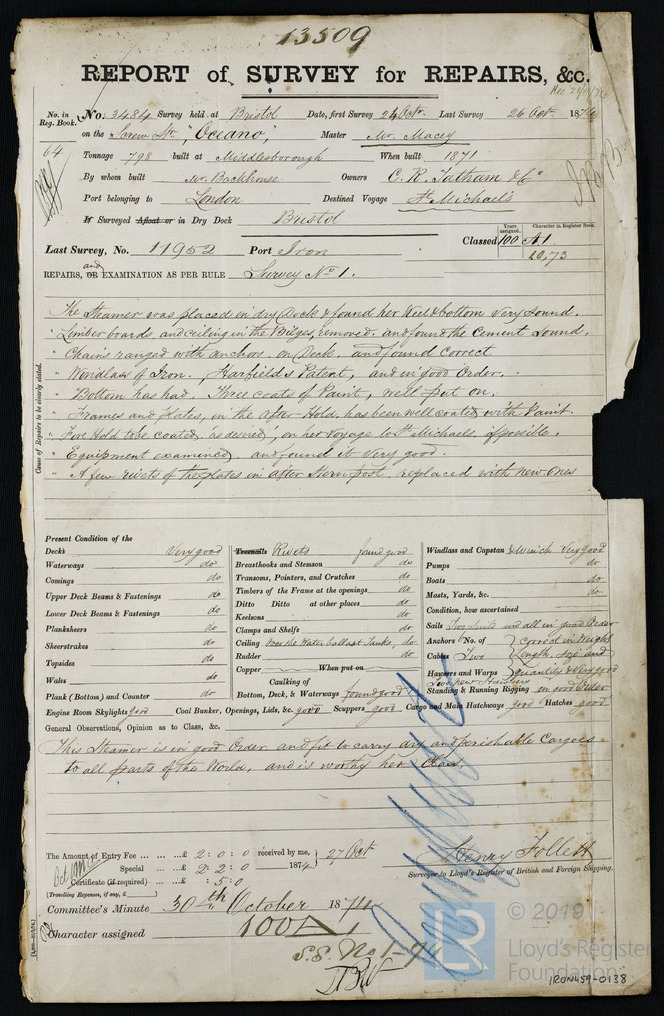 13509
REPORT of SURVEY for REPAIRS, &c.
No. in Reg. Book. No. 3484 Survey held at Bristol Date, first Survey 24 Oct. Last Survey 26 Oct 1874
64 on the Screw Str "Oceano", Master Mr. Macey
Tonnage 798 built at Middlesborough When built 1871
By whom built Mr. Backhouse Owners C. R. Tatham & Co
Port belonging to London Destined Voyage St Michael's
If Surveyed Afloat or in Dry Dock Bristol
Last Survey, No. 11952 Port Iron Classed 100 A1.
Years assigned. Character in Register Book.
10,73
REPAIRS, OR and EXAMINATION AS PER RULE Survey No 1.
Cause of Repairs to be clearly stated.
The Steamer was placed in dry Dock & found her Keel & bottom Very Sound.
" Limber boards, and ceiling in the Bilges removed, and found the Cement Sound.
" Chains ranged with anchors, on Deck, and found correct
" Windlass of Iron, Harfield's Patent, and in good Order.
" Bottom has had, Three coats of Paint, well put on.
" Frames and plates, in the After Hold, has been well coated with Paint.
" Fore Hold to be coated, "as desired", on her voyage to St Michaels, if possible.
" Equipment examined, and found it Very good.
" A few rivets of the plates in after Stern post, replaced with new ones
Present Condition of the
Decks Very good
Waterways do
Comings do
Upper Deck Beams & Fastenings do
Lower Deck Beams & Fastenings do
Planksheers do
Sheerstrakes do
Topsides do
Wales do
Plank (Bottom) and Counter do
Treenails Rivets found good
Breasthooks and Stemson do
Transoms, Pointers, and Crutches do
Timbers of the Frame at the openings do
Ditto Ditto at other places do
Keelsons do
Clamps and Shelfs do
Ceiling over the Water ballast Tanks, do
Rudder do
Copper When put on
Caulking of
Bottom, Deck, & Waterways found good
Windlass and Capstan & Winch Very good
Pumps do
Boats do
Masts, Yards, &c. do
Condition, how ascertained
Sails Two Suits and all in good Order
Anchors No. of correct in Weight
Cables Two Length, Size and
Hawsers and Warps quantity & Very good
Two new Hawsers
Standing & Running Rigging in good Order
Engine Room Skylights good Coal Bunker, Openings, Lids, &c. good Scuppers good Cargo and Main Hatchways good Hatches good
General Observations, Opinion as to Class, &c.
This Steamer is in good Order and fit to carry dry and perishable Cargoes
to all parts of the World, and is worthy her Class
The Amount of Entry Fee £ 2 : 0 : 0 received by me, 27 Oct
Special £ 2 2 : 0 1874
Certificate (if required) : 5 : 0
(Travelling Expenses, if any, £ )
Henry Follett
Surveyor to Lloyd's Register of British and Foreign Shipping.
Committee's Minute 30th October 1874
Character assigned 100 A1
S.S. No 1-74
© 2019
LR
Lloyd's Register
Foundation
IRON459-0138